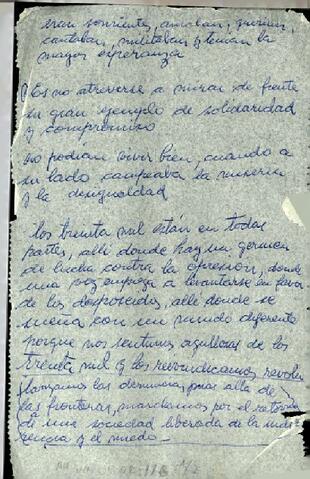 eran sonrientes, amaban, querian,
cantaban, militaban y tenian la
mayor esperanza
Es no atreverse a mirar de frente
su gran ejemplo de solidaridad
y compromiso
no podian vivir bien, cuando a
su lado campeaba la miseria
y la desigualdad
los treinta mil están en todas
partes, alli donde hay un germen
de lucha contra la opresión, donde
una voz empieza a levantarse en favor
de los desposeidos, alli donde se
sueña con un mundo diferente
porque nos sentimos orgullosas de los
treinta mil y los reivindicamos
lanzamos las denuncias mas alla de
las fronteras, marchamos por el retorno
de una sociedad liberada de la indi
gencia y el miedo